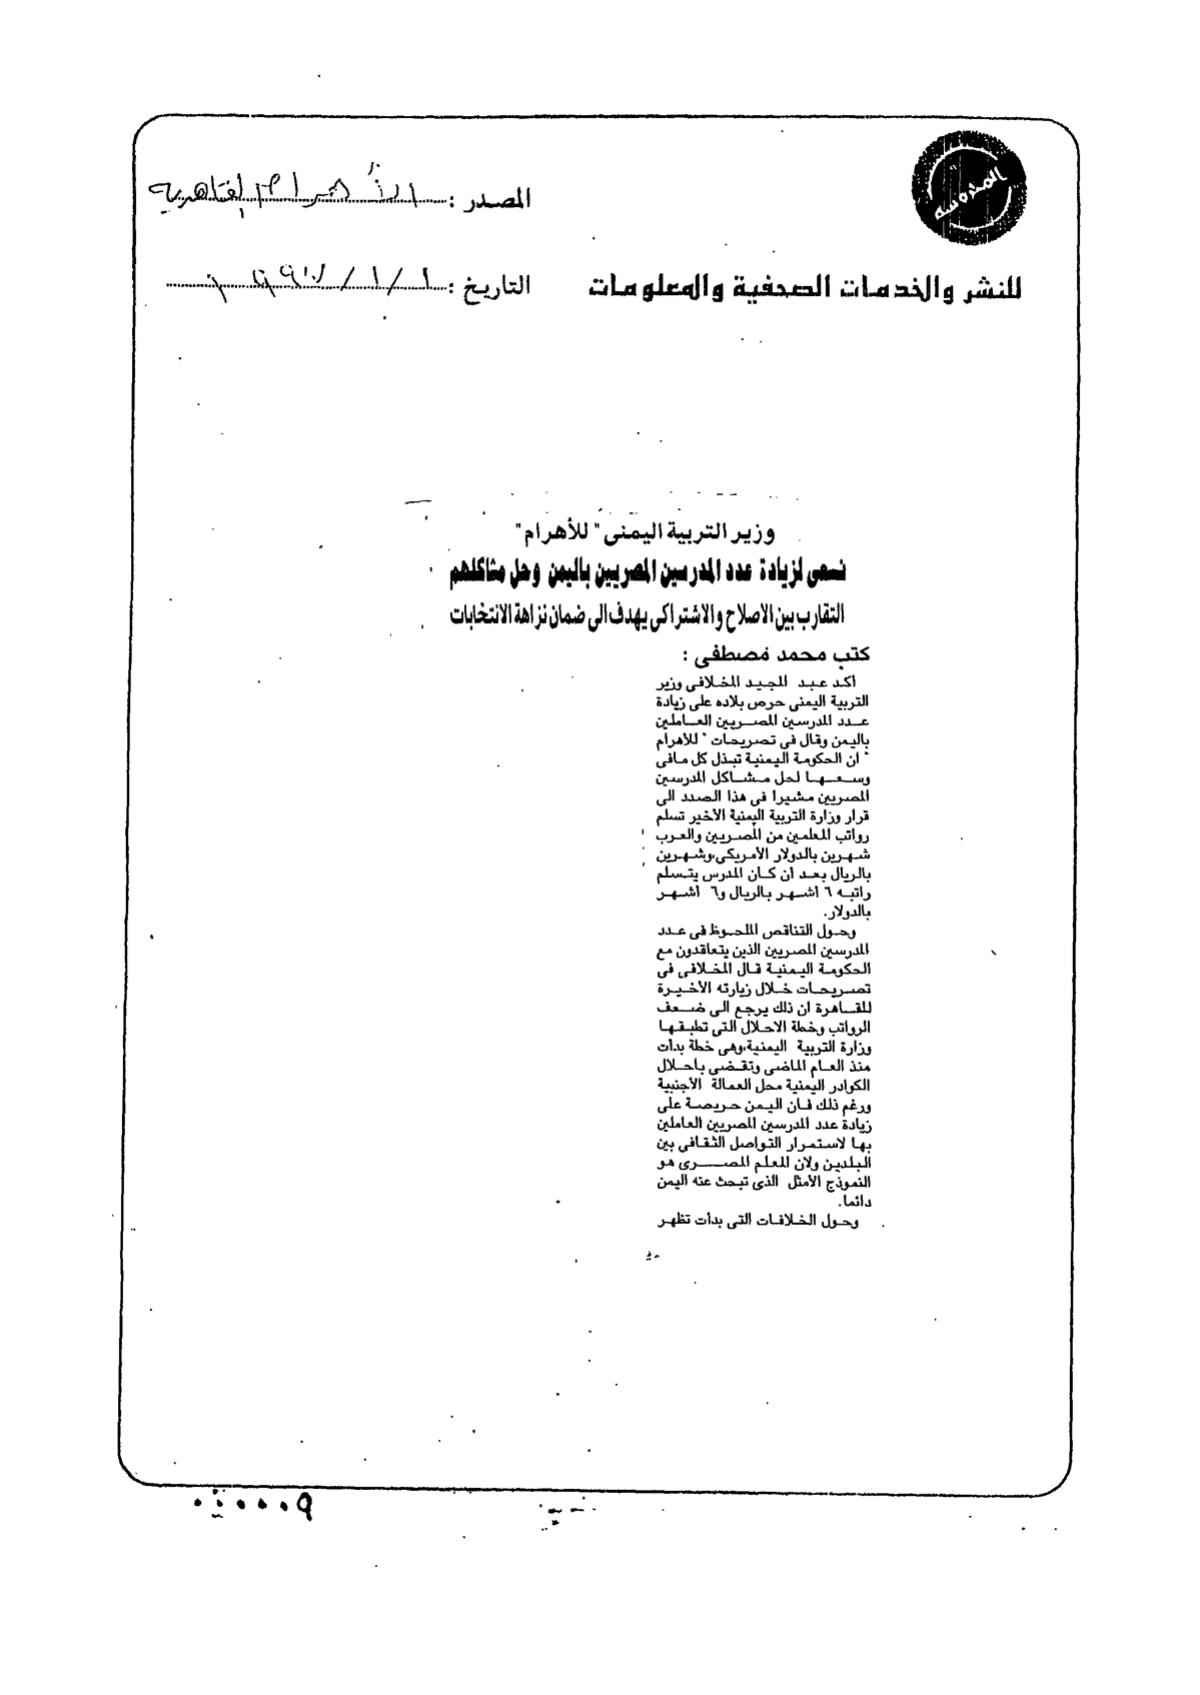 المصدر : الأهرام القاهرية
للنشر والخدمات الصحفية والمعلومات
التاريخ : ١ / ١ /
وزير التربية اليمنى " للأهرام "
نسعى لزيادة عدد المدرسين المصريين باليمن وحل مشاكلهم
التقارب بين الاصلاح والاشتراكى يهدف الى ضمان نزاهة الانتخابات
كتب محمد مصطفى :
اكد عبد المجيد المخلافى وزير
التربية اليمنى حرص بلاده على زيادة
عدد المدرسين المصريين العاملين
باليمن وقال فى تصريحات " للأهرام
" ان الحكومة اليمنية تبذل كل مافى
وسعها لحل مشاكل المدرسين
المصريين مشيرا فى هذا الصدد الى
قرار وزارة التربية اليمنية الأخير تسلم
رواتب المعلمين من المصريين والعرب
شهرين بالدولار الأمريكى،وشهرين
بالريال بعد أن كان المدرس يتسلم
راتبه ٦ اشهر بالريال و٦ اشهر
بالدولار.
وحول التناقص الملحوظ فى عدد
المدرسين المصريين الذين يتعاقدون مع
الحكومة اليمنية قال المخلافى فى
تصريحات خلال زيارته الأخيرة
للقاهرة ان ذلك يرجع الى ضعف
الرواتب وخطة الاحلال التى تطبقها
وزارة التربية اليمنية،وهى خطة بدأت
منذ العام الماضى وتقضى باحلال
الكوادر اليمنية محل العمالة الأجنبية
ورغم ذلك فان اليمن حريصة على
زيادة عدد المدرسين المصريين العاملين
بها لاستمرار التواصل الثقافى بين
البلدين ولان المعلم المصرى هو
النموذج الأمثل الذى تبحث عنه اليمن
دائما.
وحول الخلافات التى بدأت تظهر